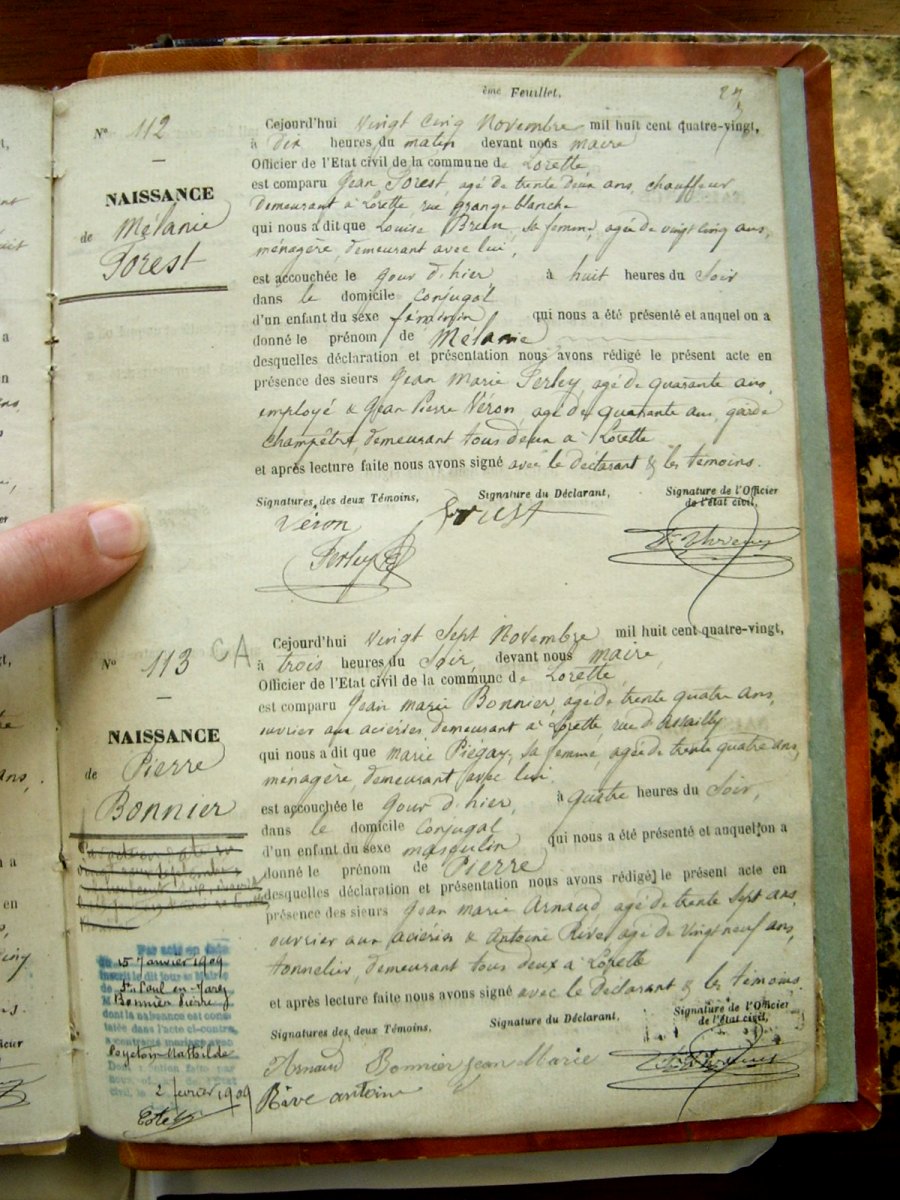 ème Feuillet.
27
N° 112
NAISSANCE
de Mélanie
Forest
Cejourd'hui vingt cinq Novembre mil huit cent quatre-vingt,
à dix heures du matin devant nous maire
Officier de l'Etat civil de la commune de Lorette
est comparu Jean Forest, agé de trente deux ans, chauffeur
demeurant à Lorette, rue grange blanche
qui nous a dit que Louise Brun, sa femme, agée de vingt cinq ans,
ménagère, demeurant avec lui,
est accouchée le jour d'hier à huit heures du Soir
dans le domicile conjugal
d'un enfant du sexe féminin qui nous a été présenté et auquel on a
donné le prénom de Mélanie
desquelles déclaration et présentation nous avons rédigé le présent acte en
présence des sieurs Jean Marie Ferley, agé de quarante ans,
employé & Jean Pierre Véron, agé de quarante ans, garde
champêtre, demeurant tous deux à Lorette
et après lecture faite nous avons signé avec le déclarant & les témoins.
Signatures des deux Témoins,
Signature du Déclarant,
Signature de l'Officier
de l'état civil,
Véron
Ferley
N° 113 CA
NAISSANCE
de Pierre
Bonnier
Cejourd'hui vingt Sept Novembre mil huit cent quatre-vingt,
à trois heures du Soir, devant nous maire
Officier de l'Etat civil de la commune de Lorette
est comparu Jean marie Bonnier, agé de trente quatre ans,
ouvrier aux aciéries demeurant à Lorette, rue d'Assailly
qui nous a dit que marie Piegay, sa femme, agée de trente quatre ans,
ménagère, demeurant avec lui.
est accouchée le jour d'hier, à quatre heures du Soir,
dans le domicile conjugal
d'un enfant du sexe masculin qui nous a été présenté et auquel on a
donné le prénom de Pierre
desquelles déclaration et présentation nous avons rédigé le présent acte en
présence des sieurs Jean marie Arnaud, agé de trente Sept ans,
ouvrier aux aciéries & Antoine Rive, agé de vingt neuf ans,
tonnelier, demeurant tous deux à Lorette
et après lecture faite nous avons signé avec le déclarant & les témoins.
Signatures des deux Témoins,
Signature du Déclarant,
Signature de l'Officier
de l'état civil,
Arnaud Bonnier Jean Marie
Rive antoine
Par acte en date
du 15 Janvier 1909
inscrit le dit jour à la Mairie
de St Paul en-Jarez
M. Bonnier Pierre
dont la naissance est cons-
tatée dans l'acte ci-contre,
a contracté mariage avec
Peyeton Mathilde
2 février 1909